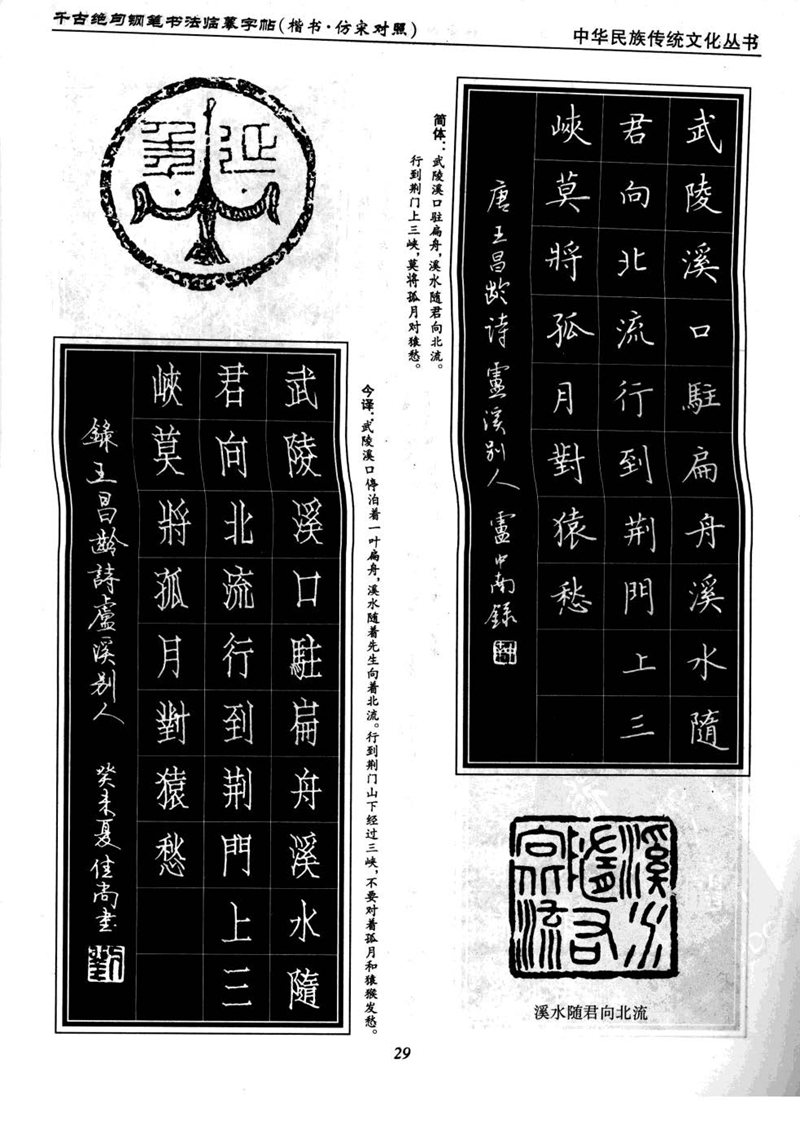 千古绝句钢笔书法临摹字帖(楷书·仿宋对照)
中华民族传统文化丛书
武陵溪口駐扁舟溪水隨
君向北流行到荆門上三
峽莫將孤月對猿愁
唐王昌龄诗盧溪别人 盧中南録
简体:武陵溪口驻扁舟,溪水随君向北流。
行到荆门上三峡,莫将孤月对猿愁。
今译:武陵溪口停泊着一叶扁舟,溪水随着先生向着北流。行到荆门山下经过三峡,不要对着孤月和猿猴发愁。
武陵溪口駐扁舟溪水隨
君向北流行到荆門上三
峽莫將孤月對猿愁
錄王昌齡詩盧溪别人 癸未夏佳尚書
溪水随君向北流
29